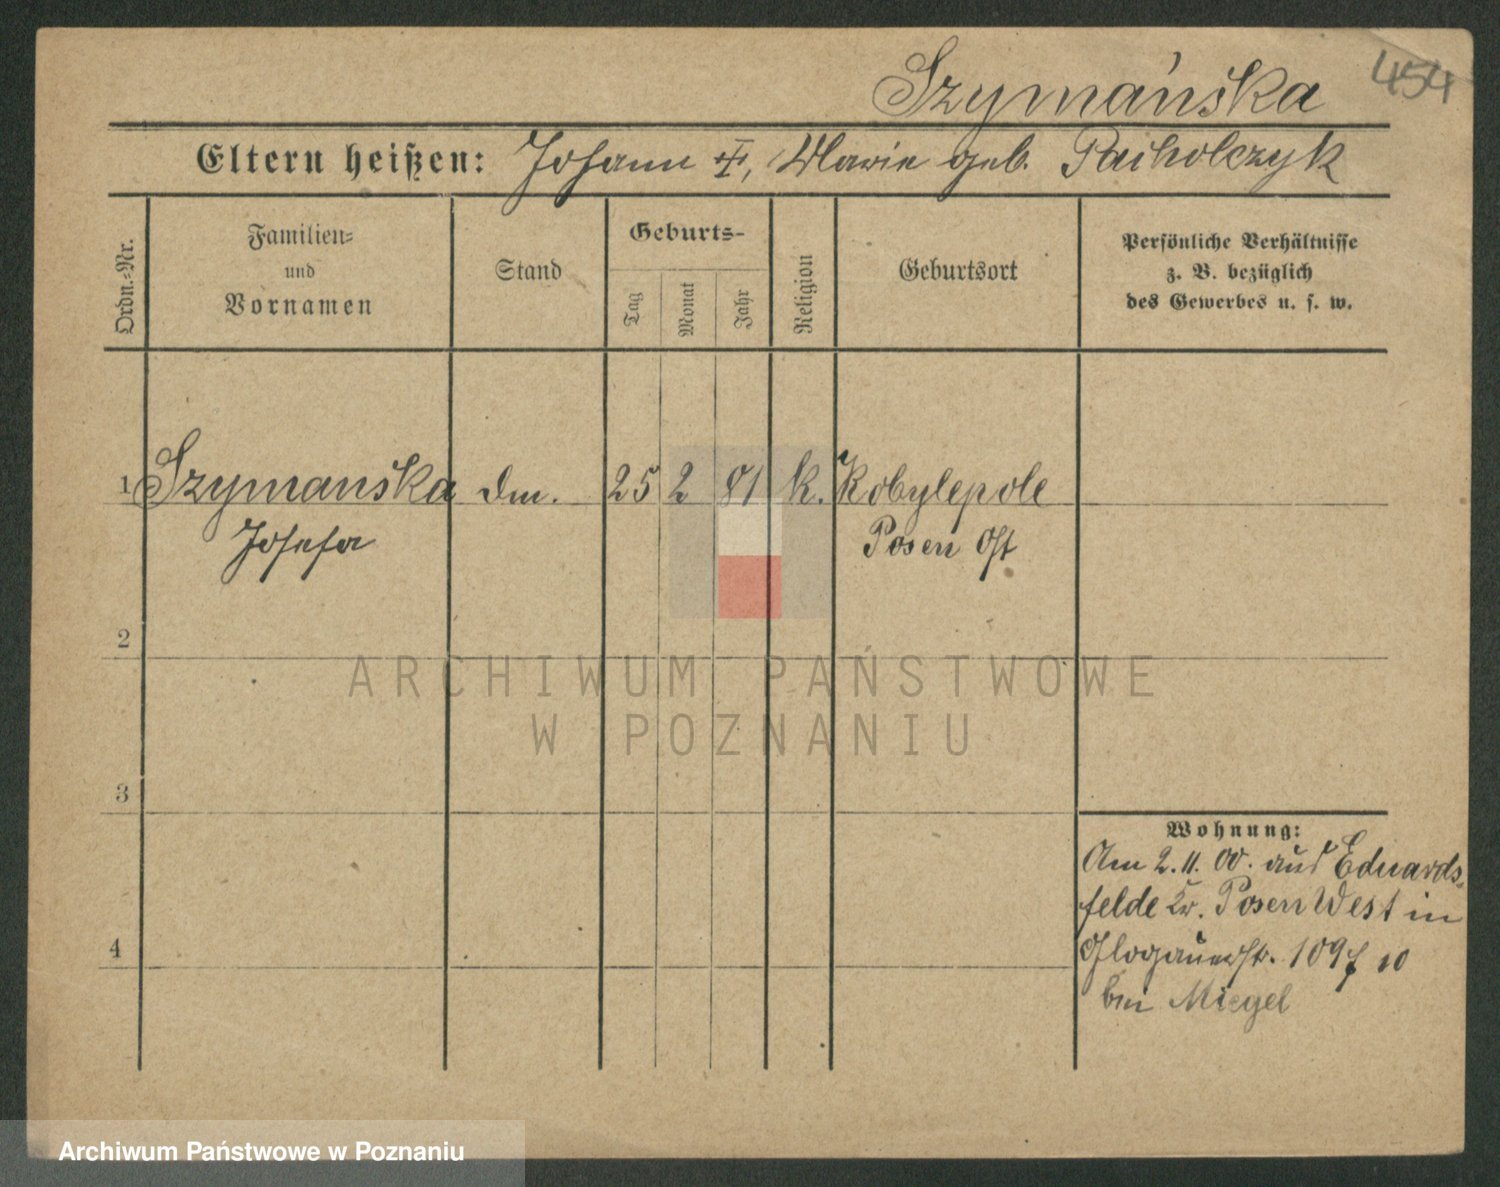 454
Szymańska
Eltern heißen: Johann ‡, Marie geb. Pacholczyk
Ordn.-Nr.
Familien-
und
Vornamen
Stand
Geburts-
Tag
Monat
Jahr
Religion
Geburtsort
Persönliche Verhältnisse
z. B. bezüglich
des Gewerbes u. s. w.
1 Szymanska dm. 25 2 81 k. Kobylepole
Josefa Posen Ost
2
3
4
Wohnung:
Am 2.11.00. aus Eduards-
felde Kr. Posen West in
Glogauerstr. 109
bei Miegel
ARCHIWUM PAŃSTWOWE
W POZNANIU
Archiwum Państwowe w Poznaniu